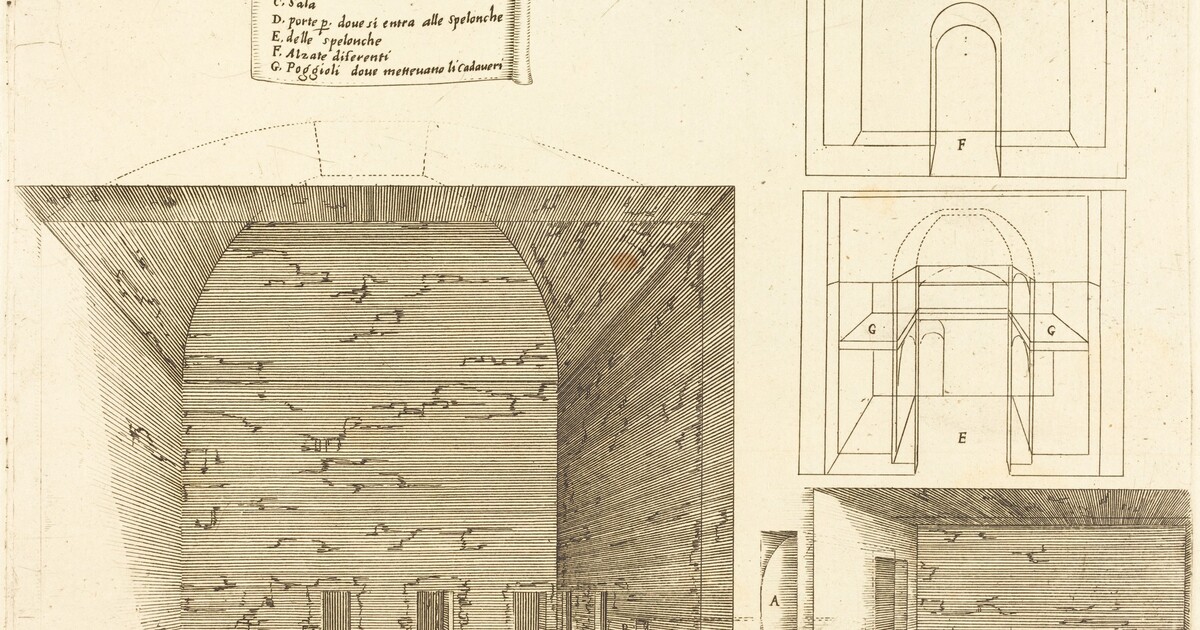 C. Sala
D. porte p. doue si entra alle spelonche
E. delle spelonche
F. Alzate diferenti
G. Poggioli doue metteuano li Cadaueri
F
G
G
E
A